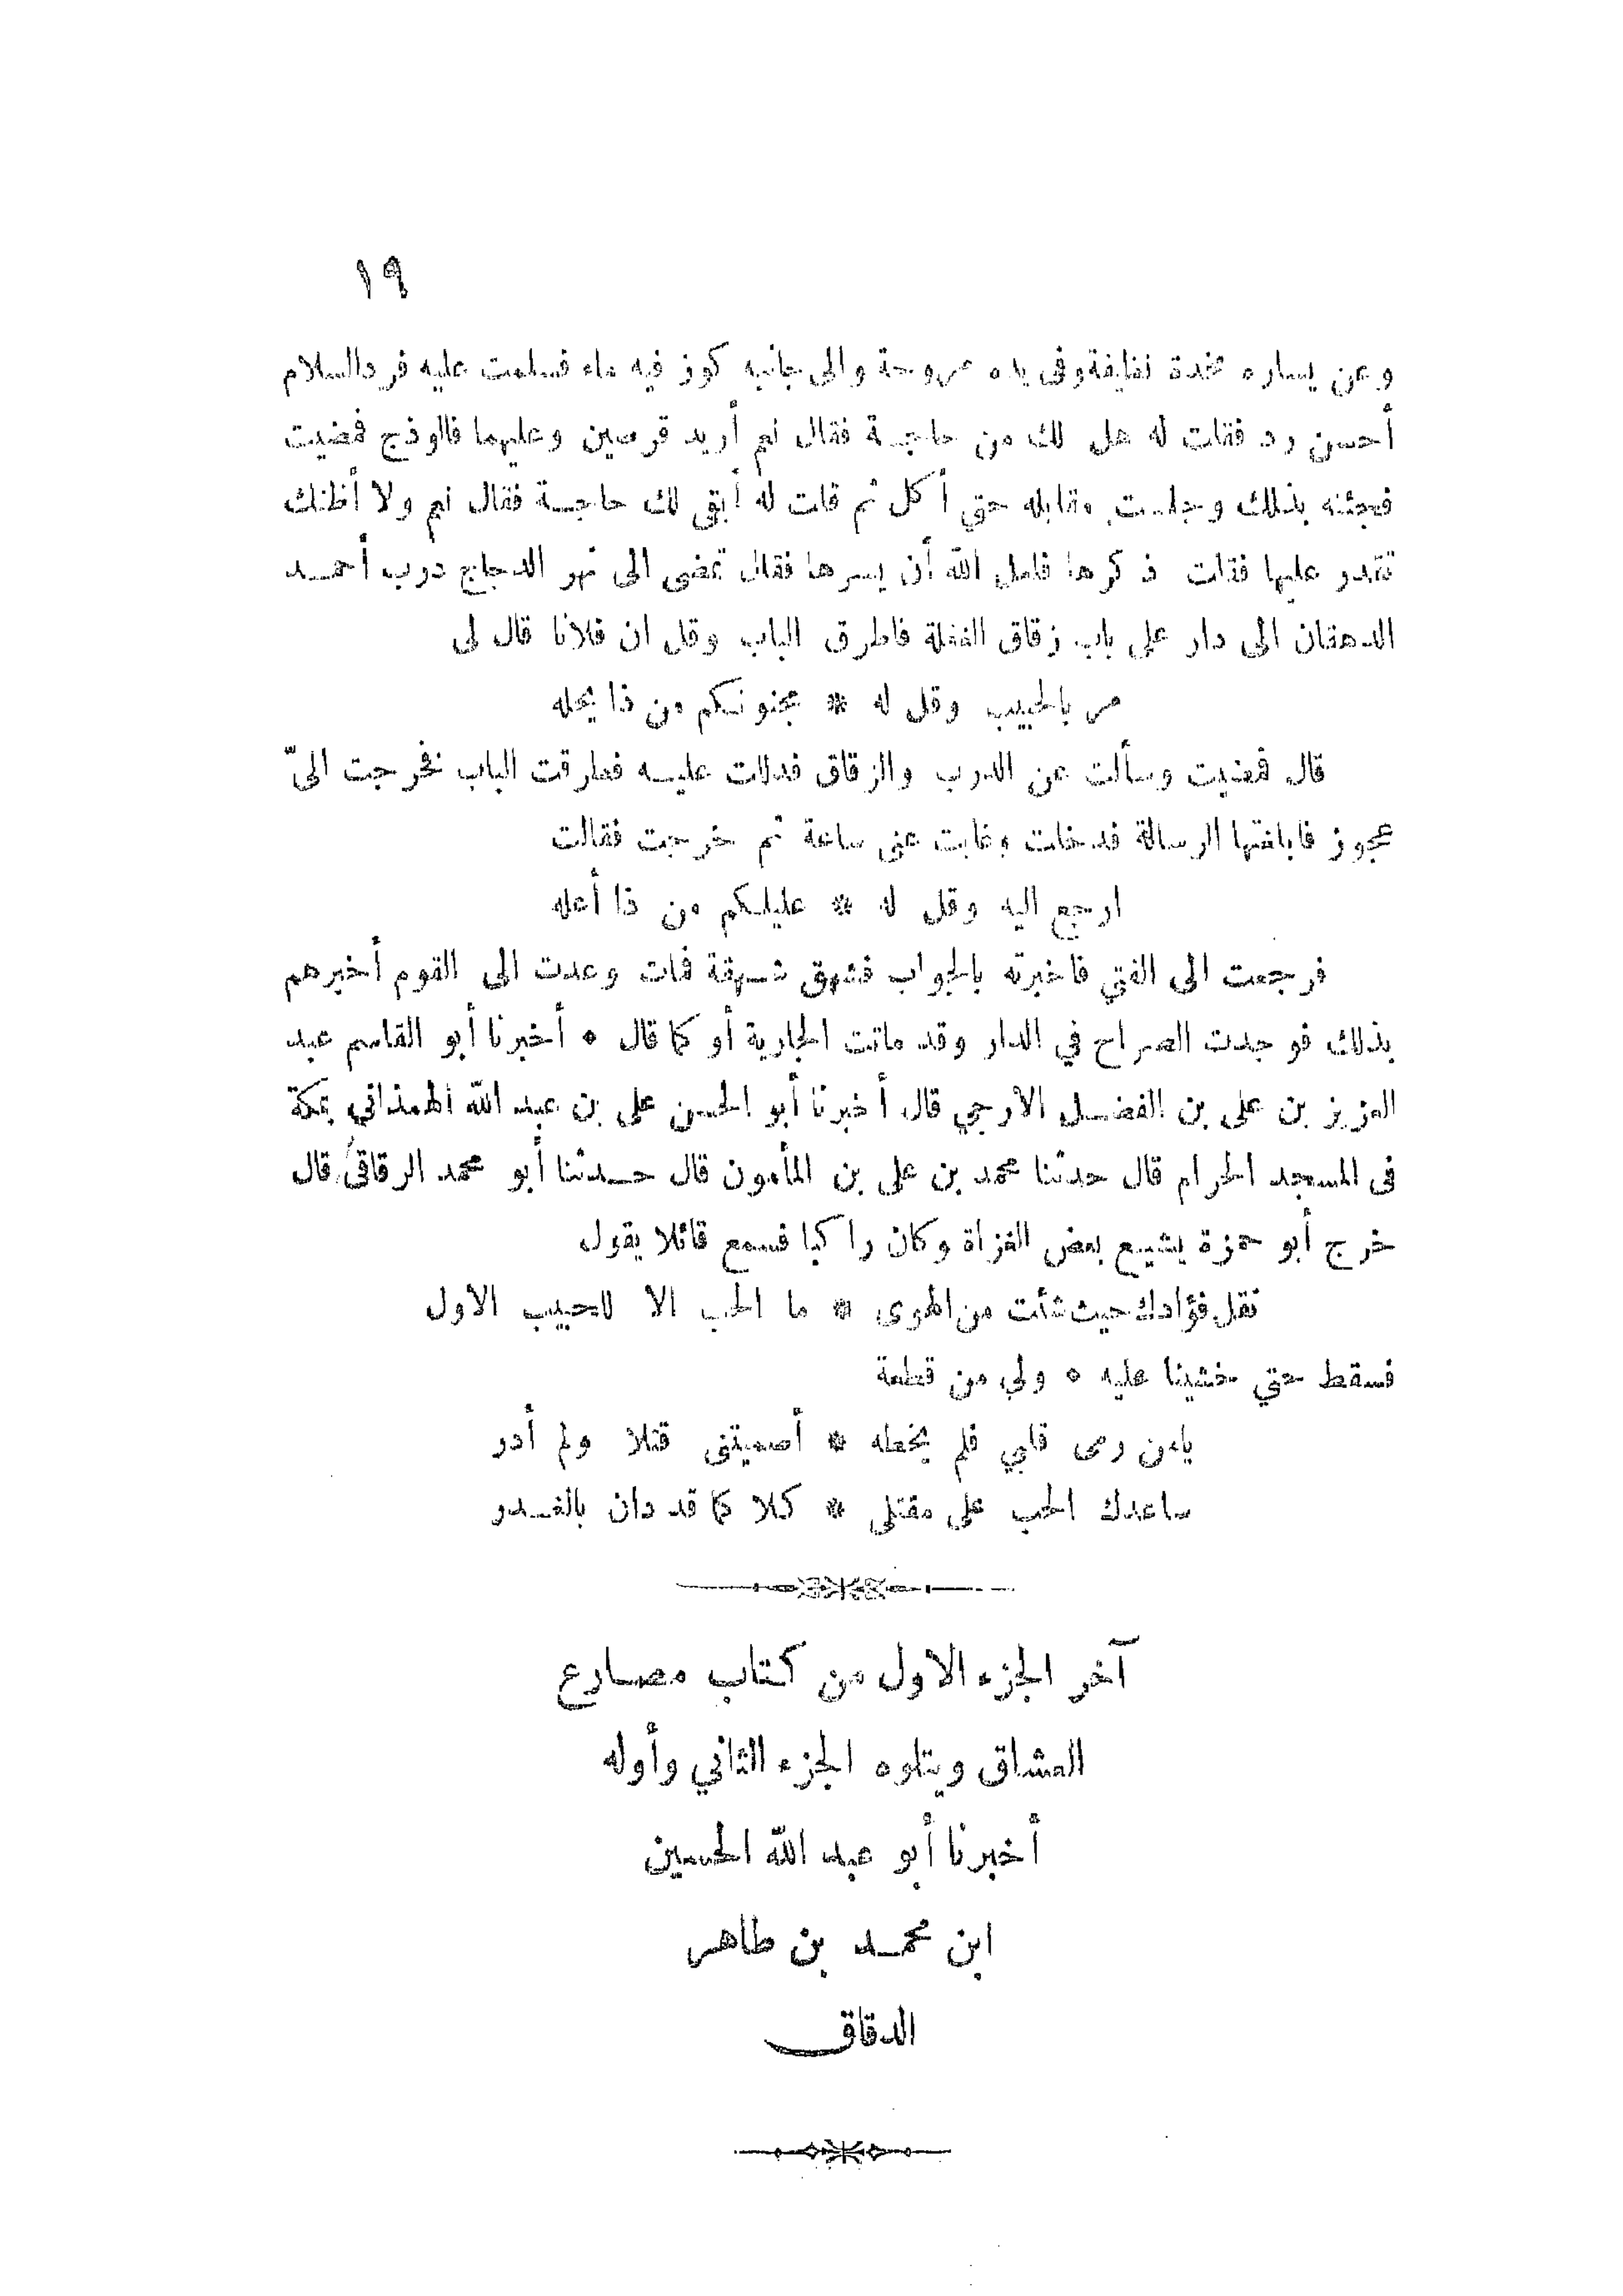 ١٩
وعن يساره مخدة نظيفة وفى يده مروحة والى جانبه كوز فيه ماء فسلمت عليه فرد السلام
أحسن رد فقلت له هل لك من حاجة فقال نعم أريد قرصين وعليهما فالوذج فمضيت
فجئته بذلك وجلست مقابله حتى أكل ثم قلت له أبقى لك حاجة فقال نعم ولا أظنك
تقدر عليها فقلت ذكرها فلعل الله أن يسرها فقال تمضى الى نهر الدجاج درب أحمد
الدهقان الى دار على باب زقاق الغفلة فاطرق الباب وقل ان فلانا قال لى
مر بالحبيب وقل له * مجنونكم من ذا يحله
قال فمضيت وسألت عن الدرب والزقاق فدللت عليه فطرقت الباب فخرجت الىّ
عجوز فابلغتها الرسالة فدخلت وغابت عنى ساعة ثم خرجت فقالت
ارجع اليه وقل له * عليلكم من ذا أعله
فرجعت الى الفتي فاخبرته بالجواب فشهق شهقة فمات وعدت الى القوم أخبرهم
بذلك فوجدت الصراح في الدار وقد ماتت الجارية أو كما قال ٠ أخبرنا أبو القاسم عبد
العزيز بن على بن الفضل الارجي قال أخبرنا أبو الحسن على بن عبد الله الهمذاني بمكة
فى المسجد الحرام قال حدثنا محمد بن على بن المأمون قال حدثنا أبو محمد الرقاقى قال
خرج أبو حمزة يشيع بعض الغزاة وكان راكبا فسمع قائلا يقول
نقل فؤادك حيث شئت من الهوى * ما الحب الا للحبيب الاول
فسقط حتي خشينا عليه ٠ ولي من قطعة
يامن رمى قلبي فلم يخطه * أصميتنى قتلا ولم أدر
ساعدك الحب على مقتلى * كلا كما قد دان بالغدر
آخر الجزء الاول من كتاب مصارع
العشاق ويتلوه الجزء الثاني وأوله
أخبرنا أبو عبد الله الحسين
ابن محمد بن طاهر
الدقاق